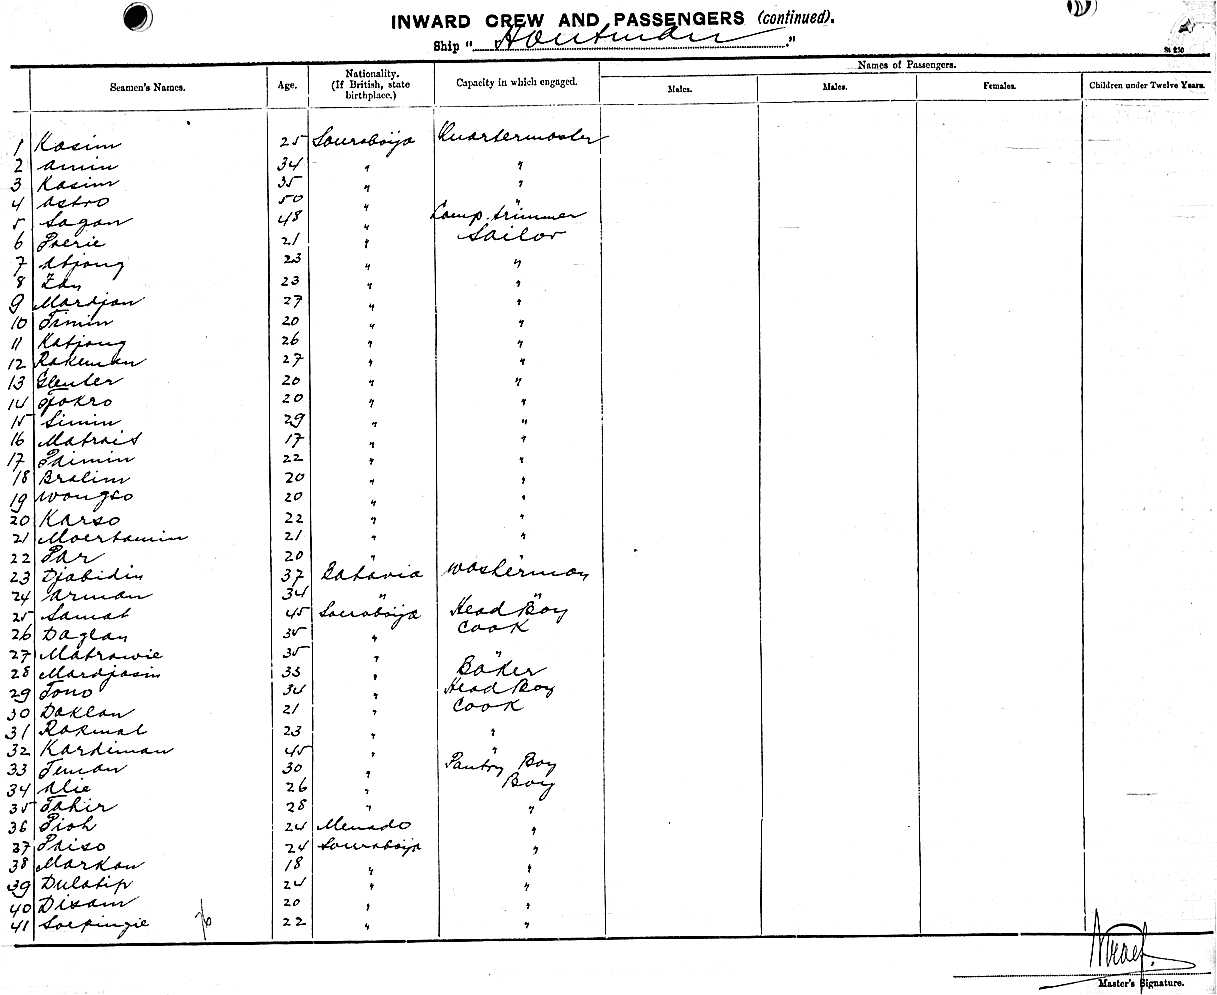 INWARD CREW AND PASSENGERS (continued).
Ship "Houtman."
St 250
Seamen's Names. Age. Nationality. (If British, state birthplace.) Capacity in which engaged. Names of Passengers.
Males. Males. Females. Children under Twelve Years.
1 Kasim 25 Sourabaija Quartermaster
2 Amin 34 " "
3 Kasim 35 " "
4 Astro 50 " "
5 Sagan 48 " Lamp. trimmer
6 Paerie 21 " Sailor
7 Atjong 23 " "
8 23 " "
9 Mardjan 27 " "
10 Timin 20 " "
11 Katjong 26 " "
12 Rakeman 27 " "
13 Glenter 20 " "
14 Tjokro 20 " "
15 Simin 29 " "
16 Matrais 17 " "
17 Paimin 22 " "
18 Bralim 20 " "
19 Wongso 20 " "
20 Karso 22 " "
21 Moertamin 21 " "
22 Par 20 " "
23 Djabidin 37 Batavia Washerman
24 Arman 34 " "
25 Samat 45 Sourabaija Head Boy
26 Daglan 35 " Cook
27 Matrawie 35 " "
28 Mardjasin 33 " Baker
29 Tono 34 " Head Boy
30 Daklan 21 " Cook
31 Rakmat 23 " "
32 Kardiman 45 " "
33 Teman 30 " Pantry Boy
34 Alie 26 " Boy
35 Tahir 28 " "
36 Pioh 24 Menado "
37 Paiso 24 Sourabaija "
38 Markan 18 " "
39 Dulatip 24 " "
40 Disam 20 " "
41 Soepingie 22 " "
Master's Signature.